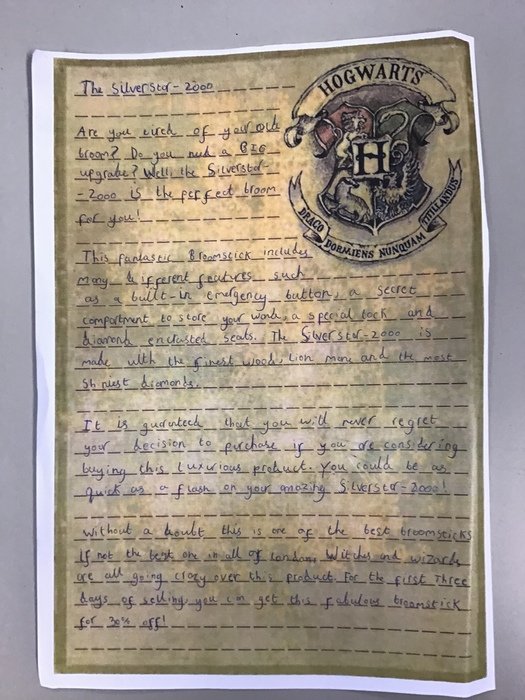 The Silverstar-2000
HOGWARTS
H
DRACO DORMIENS NUNQUAM TITILLANDUS
Are you tired of your old
broom? Do you need a BIG
upgrade? Well, the Silverstar-
-2000 is the perfect broom
for you!
This fantastic Broomstick includes
many different features such
as a built-in emergency button, a secret
compartment to store your wand, a special lock and
diamond encrusted seats. The Silverstar-2000 is
made with the finest wood, lion mane and the most
shiniest diamonds.
It is guranteed that you will never regret
your decision to purchase if you are considering
buying this luxurious product. You could be as
quick as a flash on your amazing Silverstar-2000!
Without a doubt this is one of the best broomsticks
if not the best one in all of London, Witches and wizards
are all going crazy over this product. For the first Three
days of selling, you can get this fabulous broomstick
for 30% off!